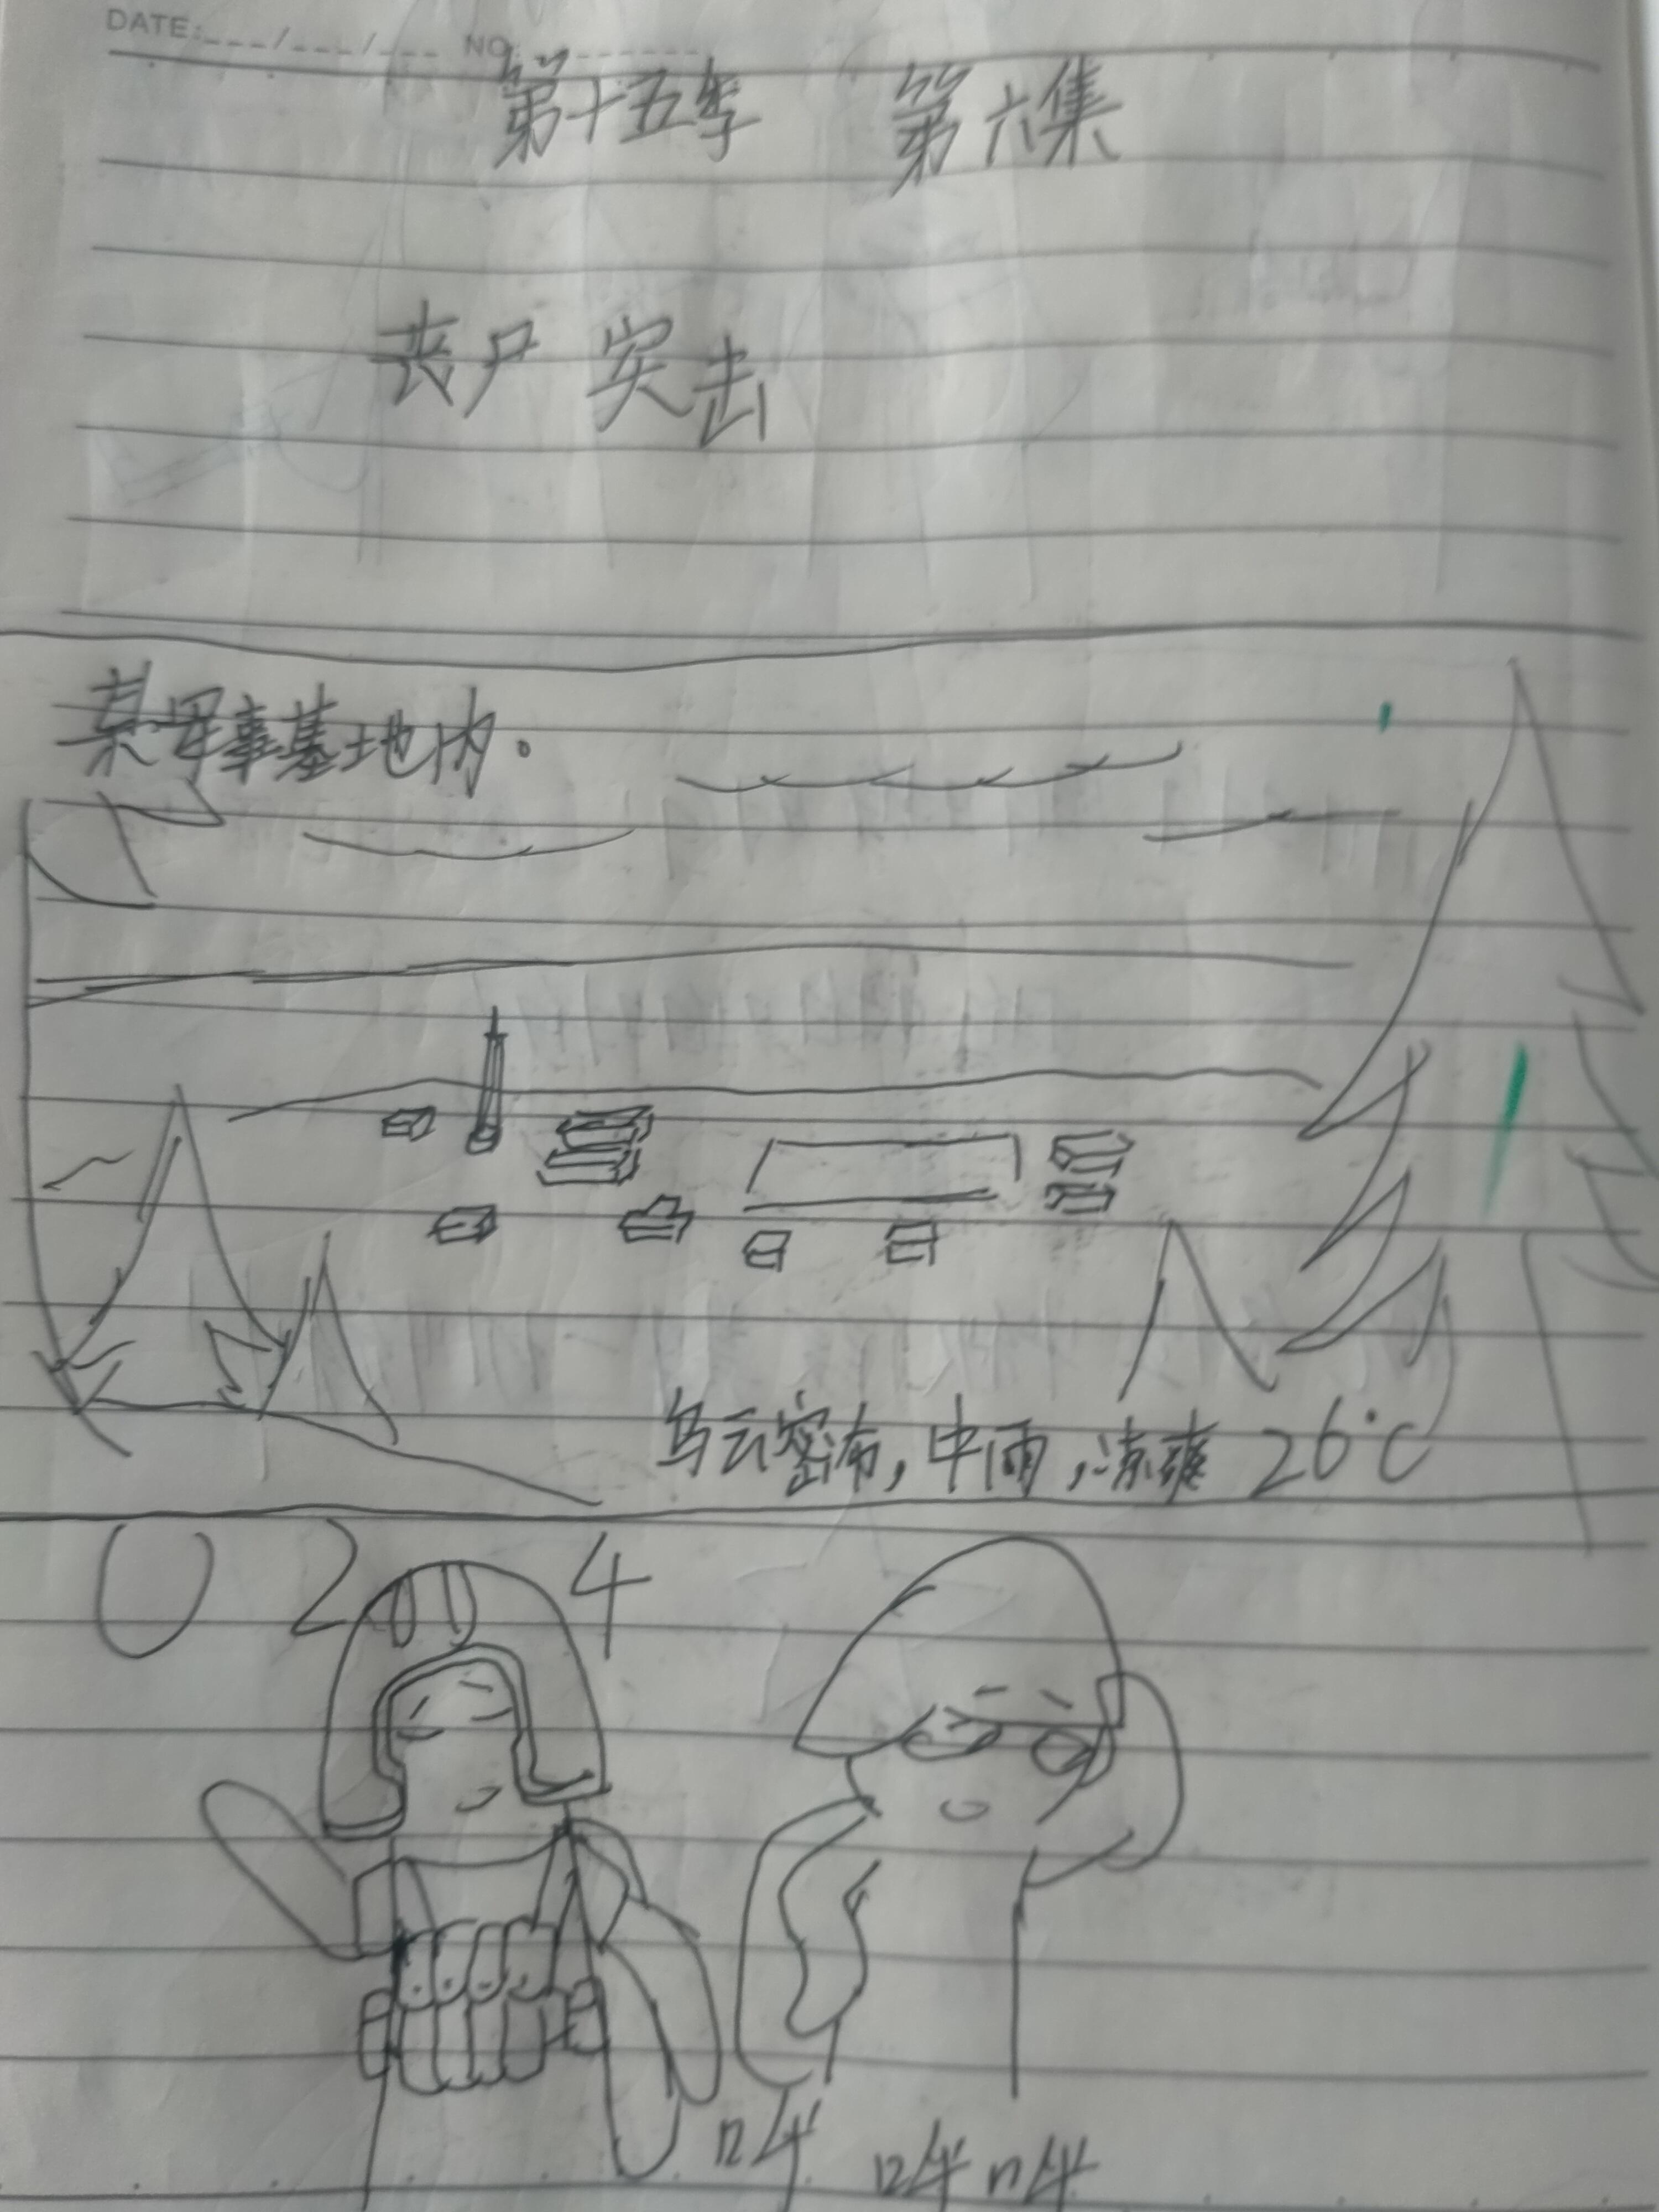 DATE:___/___/___ NO.
第十五季 第六集
丧尸突击
某军事基地内。
乌云密布,中雨,凉爽 26℃
0 2 4
咩 咩咩